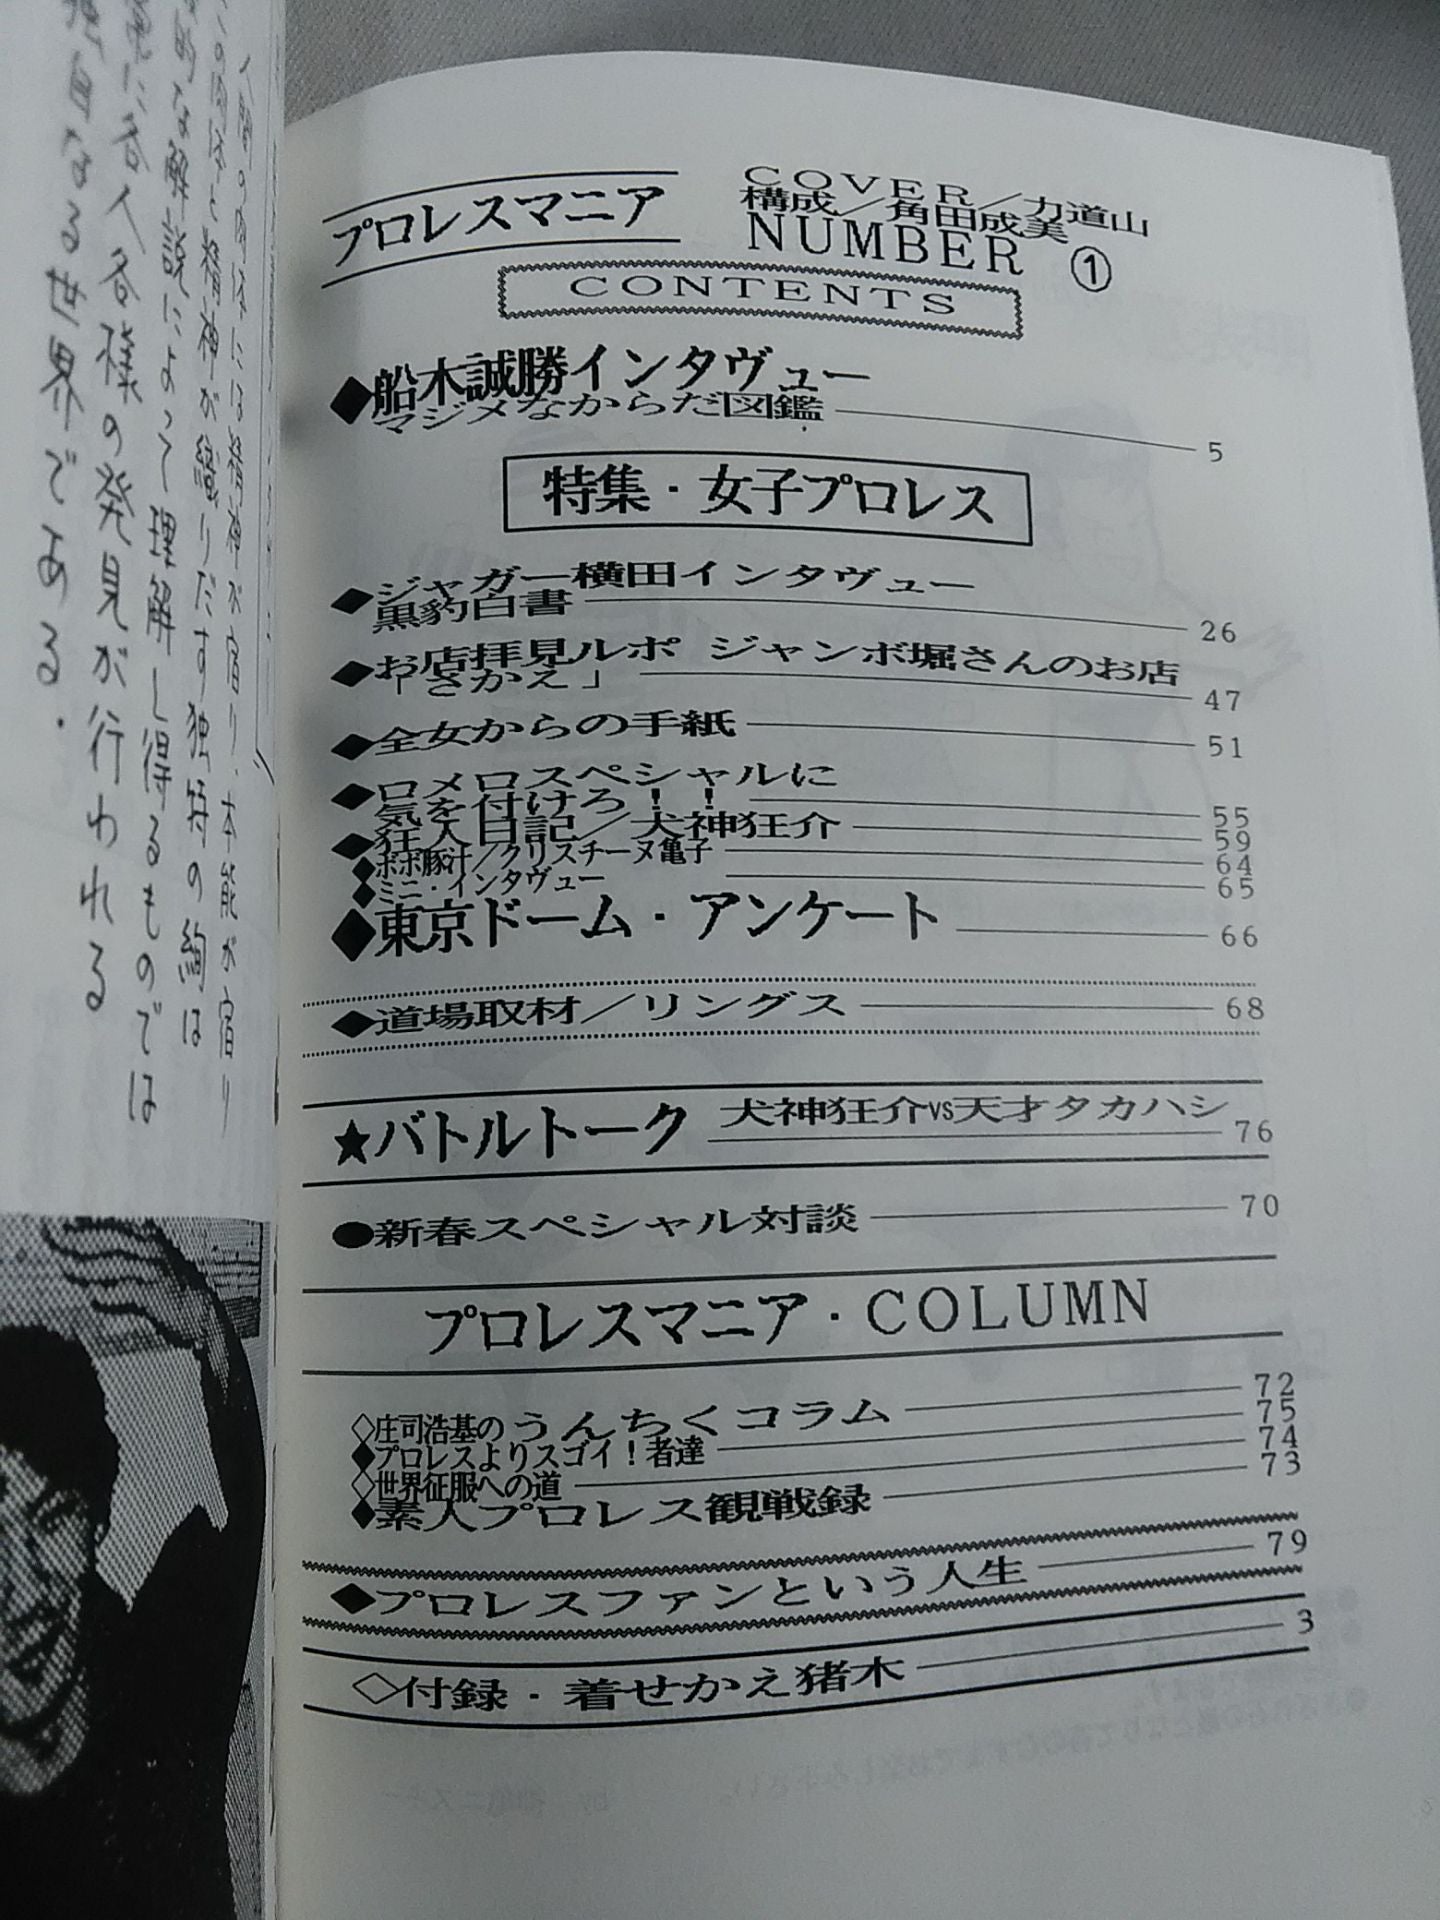 人間の肉体には精神が宿り、本能が宿り
この肉体と精神が織りだす独特の絢は
解説によって理解し得るものでは
に各人各様の発見が行われる
なる世界である.
プロレスマニア
COVER／力道山
構成／角田成美
NUMBER ①
CONTENTS
◆船木誠勝インタヴュー
マジメなからだ図鑑 5
特集・女子プロレス
◆ジャガー横田インタヴュー
黒豹白書 26
◆お店拝見ルポ ジャンボ堀さんのお店
「さかえ」 47
◆全女からの手紙 51
◆ロメロスペシャルに
気を付けろ！！ 55
◆狂人日記／犬神狂介 59
◆ポポ豚汁／クリスチーヌ亀子 64
◆ミニ・インタヴュー 65
◆東京ドーム・アンケート 66
◆道場取材／リングス 68
★バトルトーク 犬神狂介vs天才タカハシ 76
●新春スペシャル対談 70
プロレスマニア・COLUMN
◇庄司浩基のうんちくコラム 72
◆プロレスよりスゴイ！者達 75
◇世界征服への道 74
◆素人プロレス観戦録 73
◆プロレスファンという人生 79
◇付録・着せかえ猪木 3